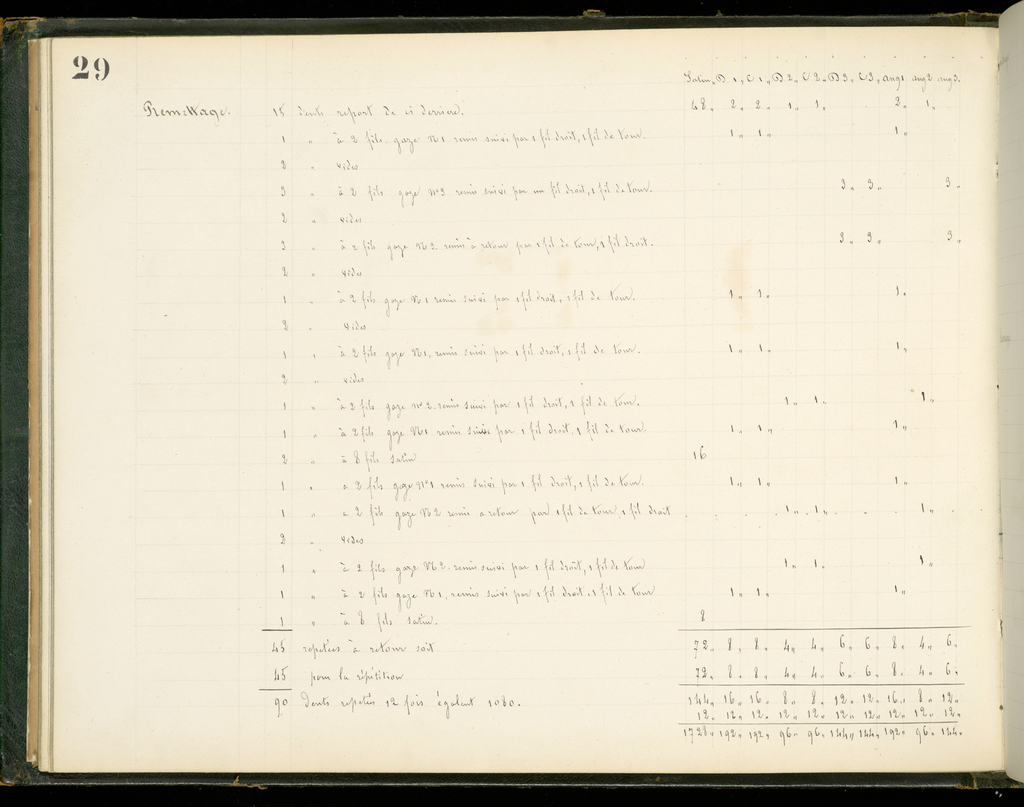 29
Satin. D 1, C 1, D 2, C 2, D 3, C 3, ang 1 ang 2 ang 3.
Remettage. 15 dents report de ci derriere. 48, 2, 2, 1, 1, 2, 1,
1 " à 2 fils gaze N1 remis suivi par 1 fil droit, 1 fil de tour. 1, 1, 1,
2 " vides
3 " à 2 fils gaze N°3 remis suivi par un fil droit, 1 fil de tour. 3, 3, 3,
2 " vides
3 " à 2 fils gaze N 3. remis à retour par 1 fil de tour, 1 fil droit. 3, 3, 3,
2 " vides
1 " à 2 fils gaze N1 remis suivi par 1 fil droit, 1 fil de tour. 1, 1, 1,
2 " vides
1 " à 2 fils gaze N1, remis suivi par 1 fil droit, 1 fil de tour. 1, 1, 1,
2 " vides
1 " à 2 fils gaze N° 2. remis suivi par 1 fil droit, 1 fil de tour. 1, 1, 1,
1 " à 2 fils gaze N1 remis suivi par 1 fil droit, 1 fil de tour. 1, 1, 1,
2 " à 8 fils satin 16
1 " a 2 fils gaze N°1 remis suivi par 1 fil droit, 1 fil de tour. 1, 1, 1,
1 " a 2 fils gaze N2 remis a retour par 1 fil de tour, 1 fil droit 1, 1, 1,
2 " vides
1 " à 2 fils gaze N2. remis suivi par 1 fil droit, 1 fil de tour 1, 1, 1,
1 " à 2 fils gaze N1, remis suivi par 1 fil droit, 1 fil de tour 1, 1, 1,
1 " à 8 fils satin. 8
45 repetées à retour soit 72, 8, 8, 4, 4, 6, 6, 8, 4, 6,
45 pour la répétition 72, 8, 8, 4, 4, 6, 6, 8, 4, 6,
90 Dents repetés 12 fois égalent 1080. 144, 16, 16, 8, 8, 12, 12, 16, 8, 12,
12, 12, 12, 12, 12, 12, 12, 12, 12, 12,
1728, 192, 192, 96, 96, 144, 144, 192, 96, 144,